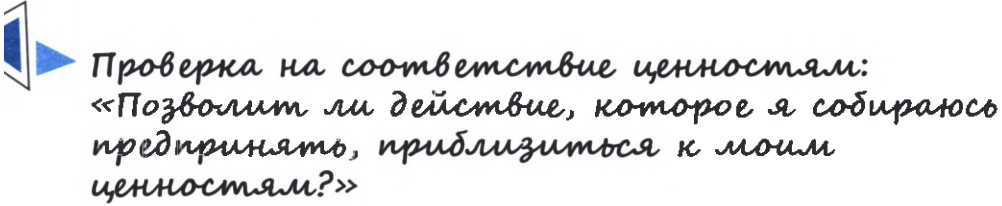 Проверка на соответствие ценностям:
«Позволит ли действие, которое я собираюсь
предпринять, приблизиться к моим
ценностям?»